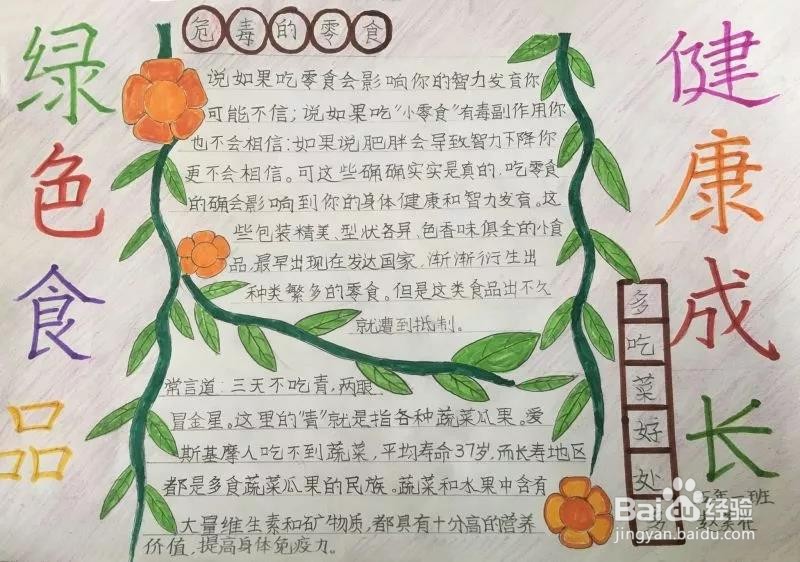 绿色食品
危毒的零食
说如果吃零食会影响你的智力发育你
可能不信；说如果吃“小零食”有毒副作用你
也不会相信：如果说肥胖会导致智力下降你
更不会相信。可这些确确实实是真的，吃零食
的确会影响到你的身体健康和智力发育。这
些包装精美、型状各异、色香味俱全的小食
品，最早出现在发达国家，渐渐衍生出
种类繁多的零食。但是这类食品出不久
就遭到抵制。
常言道：三天不吃青，两眼
冒金星。这里的“青”就是指各种蔬菜瓜果。爱
斯基摩人吃不到蔬菜，平均寿命37岁，而长寿地区
都是多食蔬菜瓜果的民族。蔬菜和水果中含有
大量维生素和矿物质，都具有十分高的营养
价值，提高身体免疫力。
健康成长
多吃菜好处多
班
Baidu经验
jingyan.baidu.com